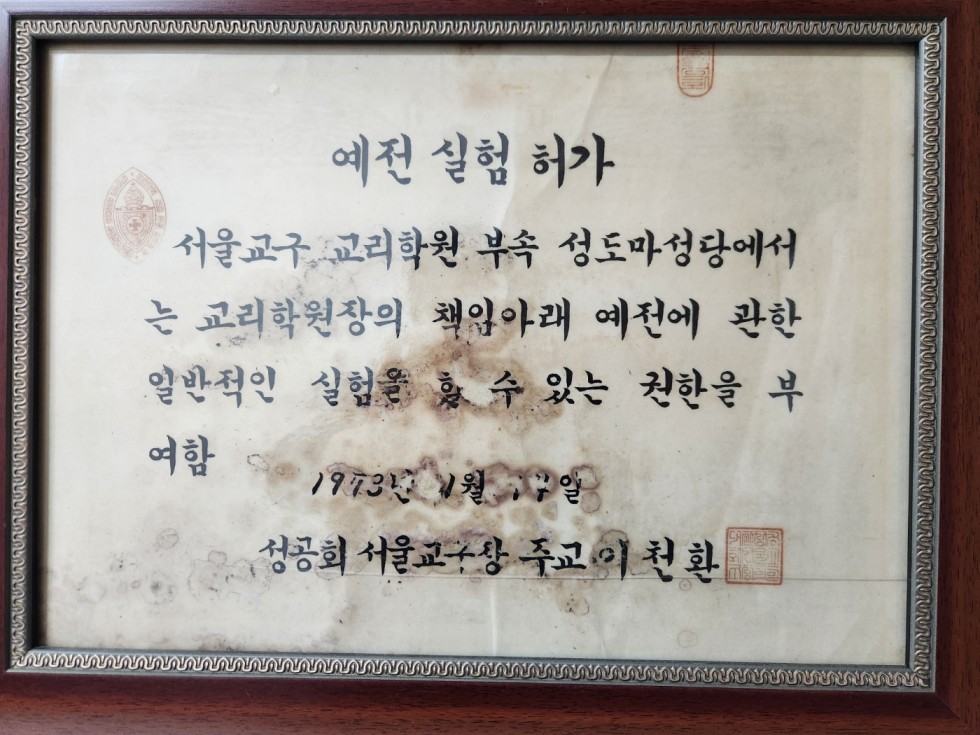 예전 실험 허가
서울교구 교리학원 부속 성도마성당에서
는 교리학원장의 책임아래 예전에 관한
일반적인 실험을 할 수 있는 권한을 부
여함
1973년 월 일
성공회 서울교구장 주교 이천환